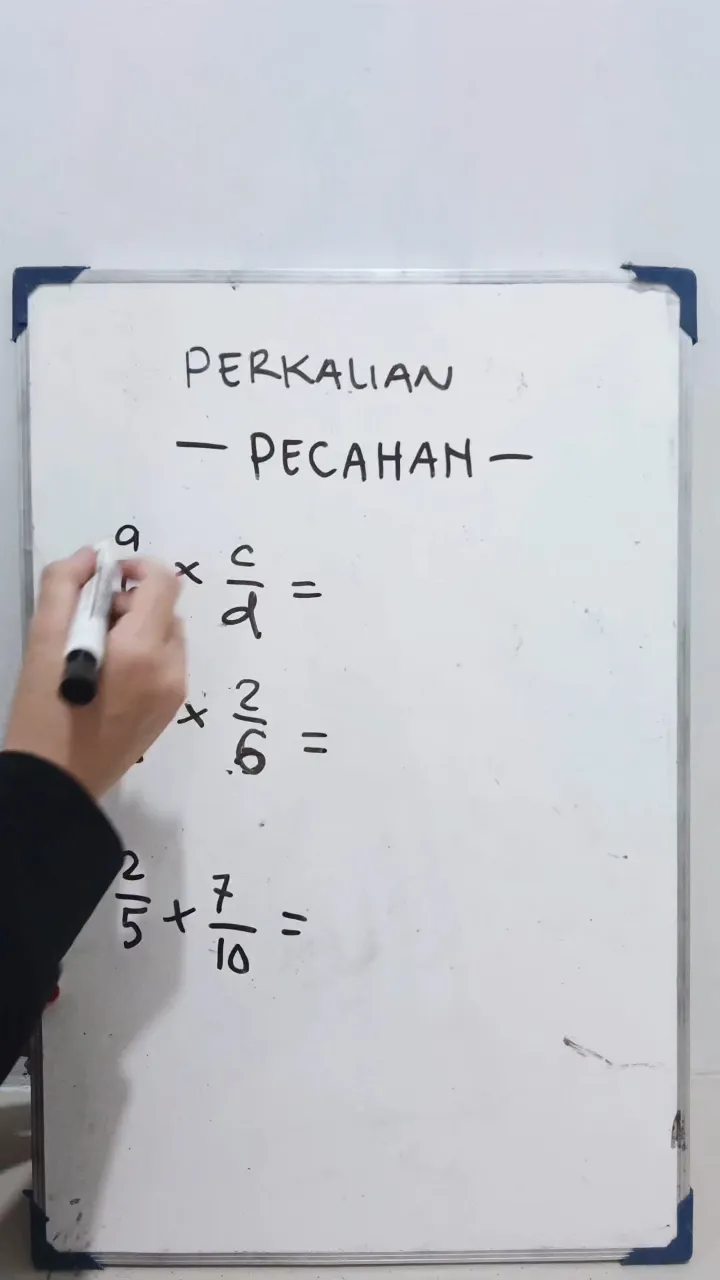 PERKALIAN
— PECAHAN —
a × c/d =
× 2/6 =
2/5 × 7/10 =